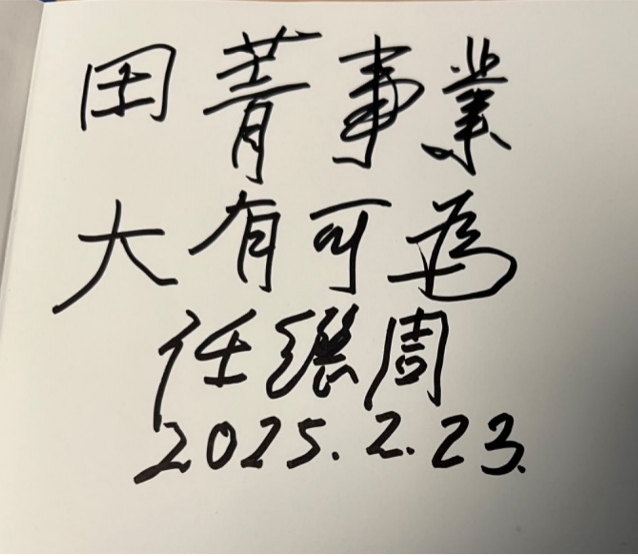 田菁事業
大有可為
任繼周
2025.2.23.